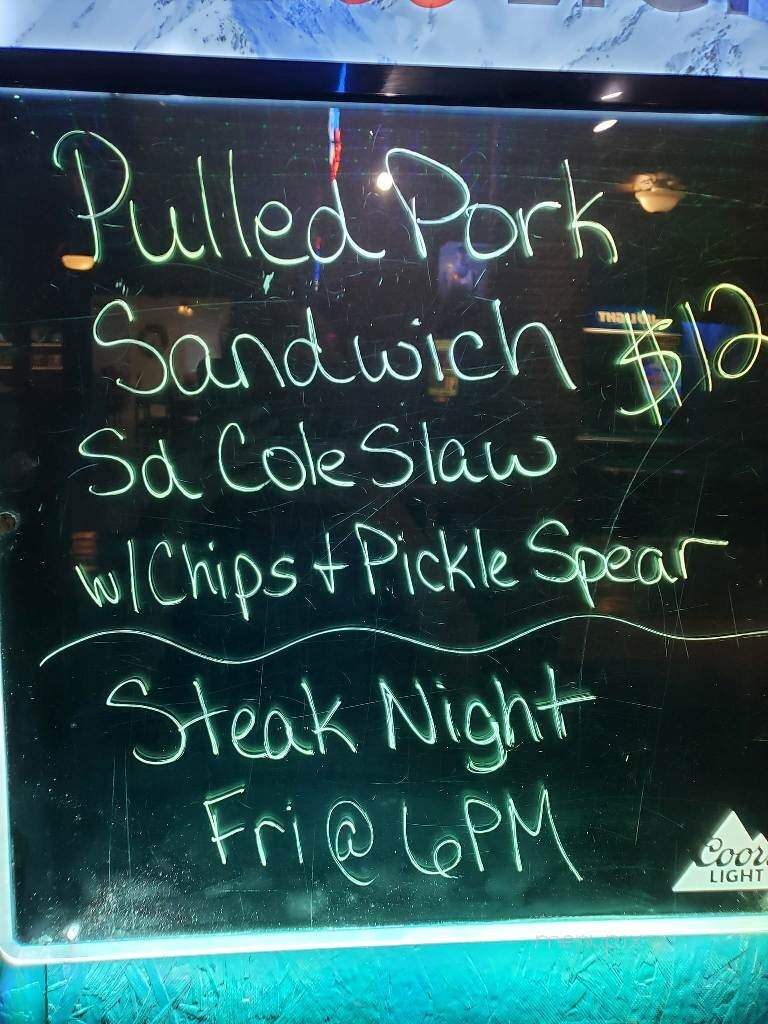 Pulled Pork
Sandwich $12
Sd Cole Slaw
w/ Chips + Pickle Spear
Steak Night
Fri @ 6PM
Coors
LIGHT